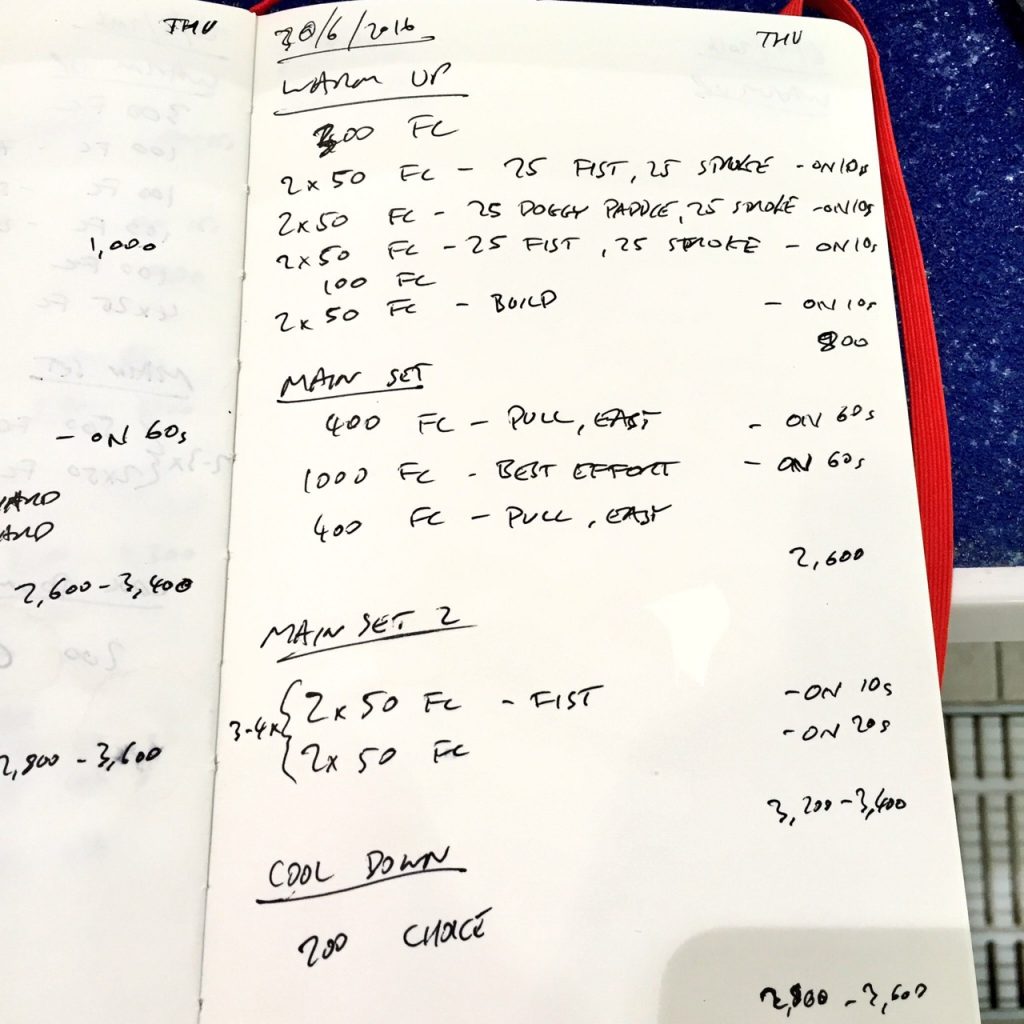 THU
1,000
- ON 60s
2,600 - 3,400
2,800 - 3,600
30/6/2016
THU
WARM UP
300 FC
2 x 50 FC - 25 FIST, 25 STROKE - ON 10s
2 x 50 FC - 25 DOGGY PADDLE, 25 STROKE - ON 10s
2 x 50 FC - 25 FIST, 25 STROKE - ON 10s
100 FC
2 x 50 FC - BUILD - ON 10s
800
MAIN SET
400 FC - PULL, EASY - ON 60s
1000 FC - BEST EFFORT - ON 60s
400 FC - PULL, EASY
2,600
MAIN SET 2
3-4x { 2 x 50 FC - FIST - ON 10s
2 x 50 FC - ON 20s
3,200 - 3,400
COOL DOWN
200 CHOICE
- 3,600